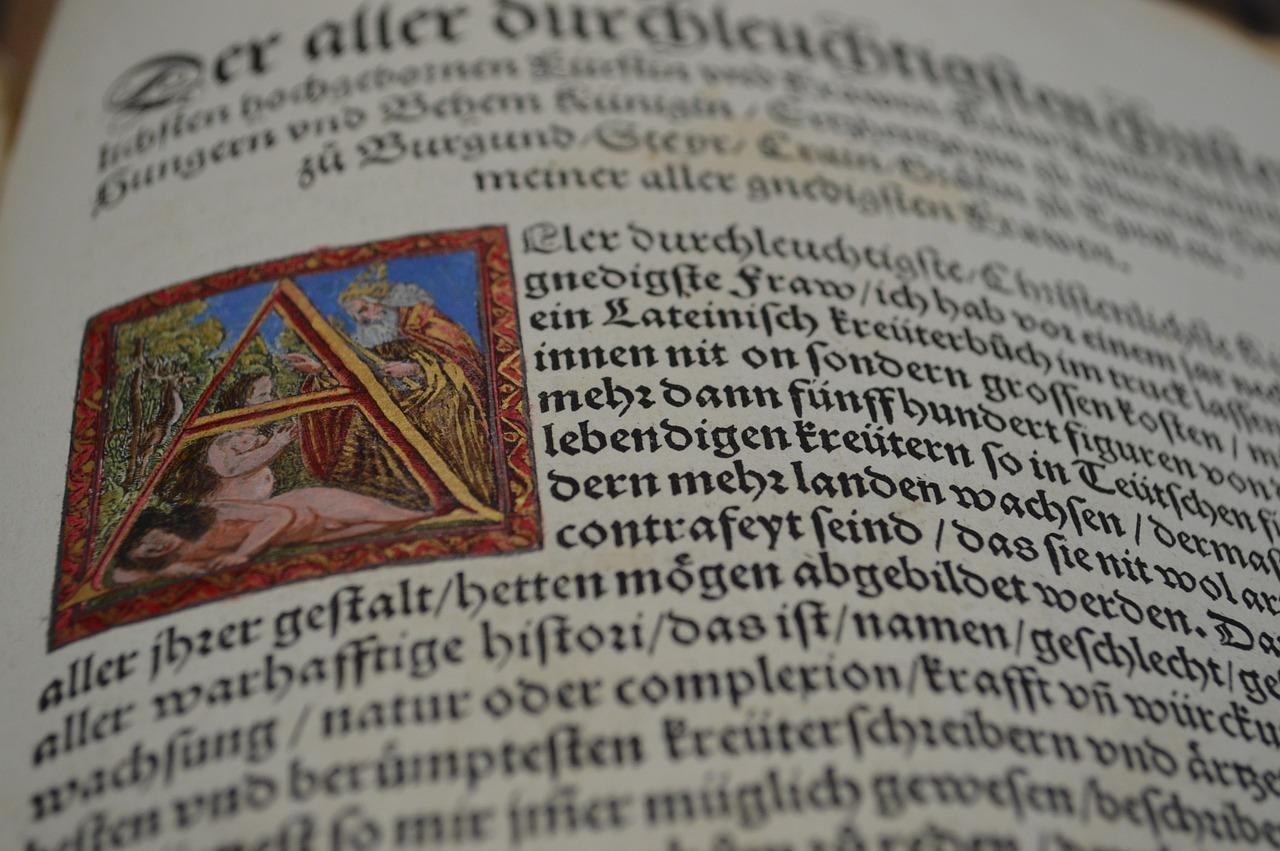 Der aller durchleuchtigsten Christen
liebsten hochgebornen Fürstin vnd Frawen
Hungern vnd Behem Künigin / Ertzhertzogin zů
zů Burgund / Steyr / Crain / Gräfin zů Tyrol, etc.
meiner aller gnedigsten Frawen.
Aller durchleuchtigste / Christenlichste
gnedigste Fraw / ich hab vor einem jar
ein Lateinisch kreüterbůch im truck lassen
innen nit on sondern grossen kosten /
mehr dann fünffhundert figuren von
lebendigen kreütern so in Teütschen
dern mehr landen wachsen / dermas
contrafeyt seind / das sie nit wol
aller jhrer gestalt / hetten mögen abgebildet werden. Da
aller warhafftige histori / das ist / namen / geschlecht /
wachsung / natur oder complexion / krafft vñ würcku
besten vnd berümptesten kreüterschreibern vnd ärtze
so mir jm̃er müglich gewesen / beschribe
zů reden /